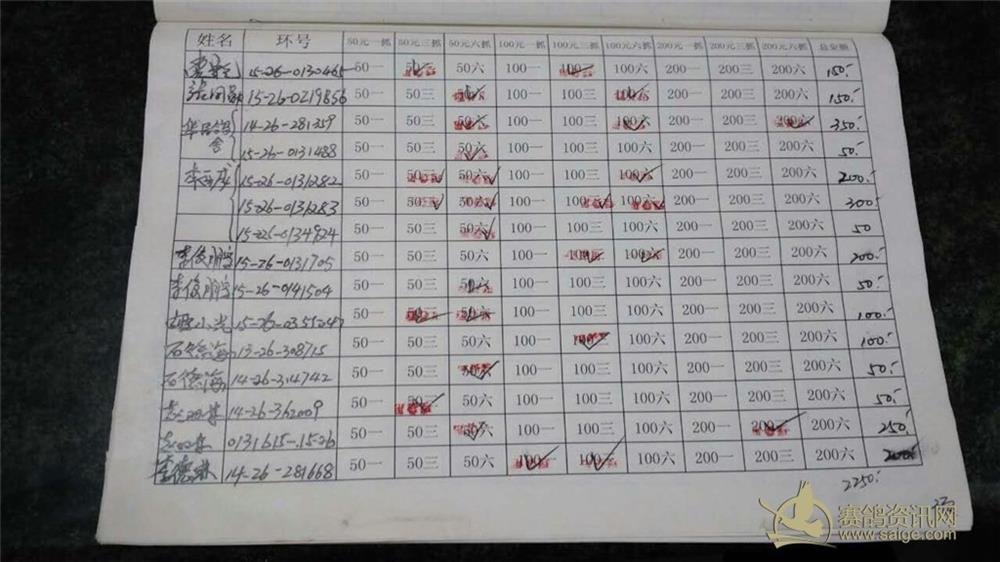 姓名 环号 50元一抓 50元三抓 50元六抓 100元一抓 100元三抓 100元六抓 200元一抓 200元三抓 200元六抓 总金额
15-26-0130465 50一 50三 50六 100一 100三 100六 200一 200三 200六 150.-
15-26-0219856 50一 50三 50六 100一 100三 100六 200一 200三 200六 150.-
14-26-281359 50一 50三 50六 100一 100三 100六 200一 200三 200六 350.-
15-26-0131488 50一 50三 50六 100一 100三 100六 200一 200三 200六 50.-
15-26-0131282 50一 50三 50六 100一 100三 100六 200一 200三 200六 200.-
15-26-0131283 50一 50三 50六 100一 100三 100六 200一 200三 200六 300
15-26-0134924 50一 50三 50六 100一 100三 100六 200一 200三 200六 50
李俊鹏 15-26-0131705 50一 50三 50六 100一 100三 100六 200一 200三 200六 200.-
李俊鹏 15-26-0141504 50一 50三 50六 100一 100三 100六 200一 200三 200六 50.-
小光 50一 50三 50六 100一 100三 100六 200一 200三 200六 100.-
石德海 13-26-308715 50一 50三 50六 100一 100三 100六 200一 200三 200六 100.-
石德海 14-26-314742 50一 50三 50六 100一 100三 100六 200一 200三 200六 50.-
14-26-362009 50一 50三 50六 100一 100三 100六 200一 200三 200六 50.-
0131615-15-26 50一 50三 50六 100一 100三 100六 200一 200三 200六 250.-
李德林 14-26-281668 50一 50三 50六 100一 100三 100六 200一 200三 200六
2250.-
赛鸽资讯网
www.saige.com